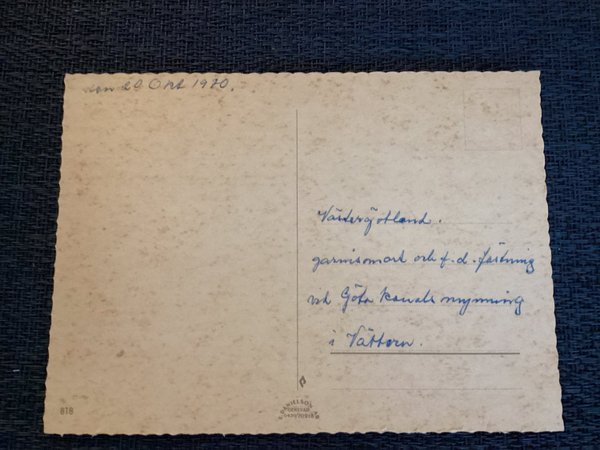 den 20 Okt 1970.
Västergötland.
garnisonsort och f.d. fästning
vid Göta kanals mynning
i Vättern.
818